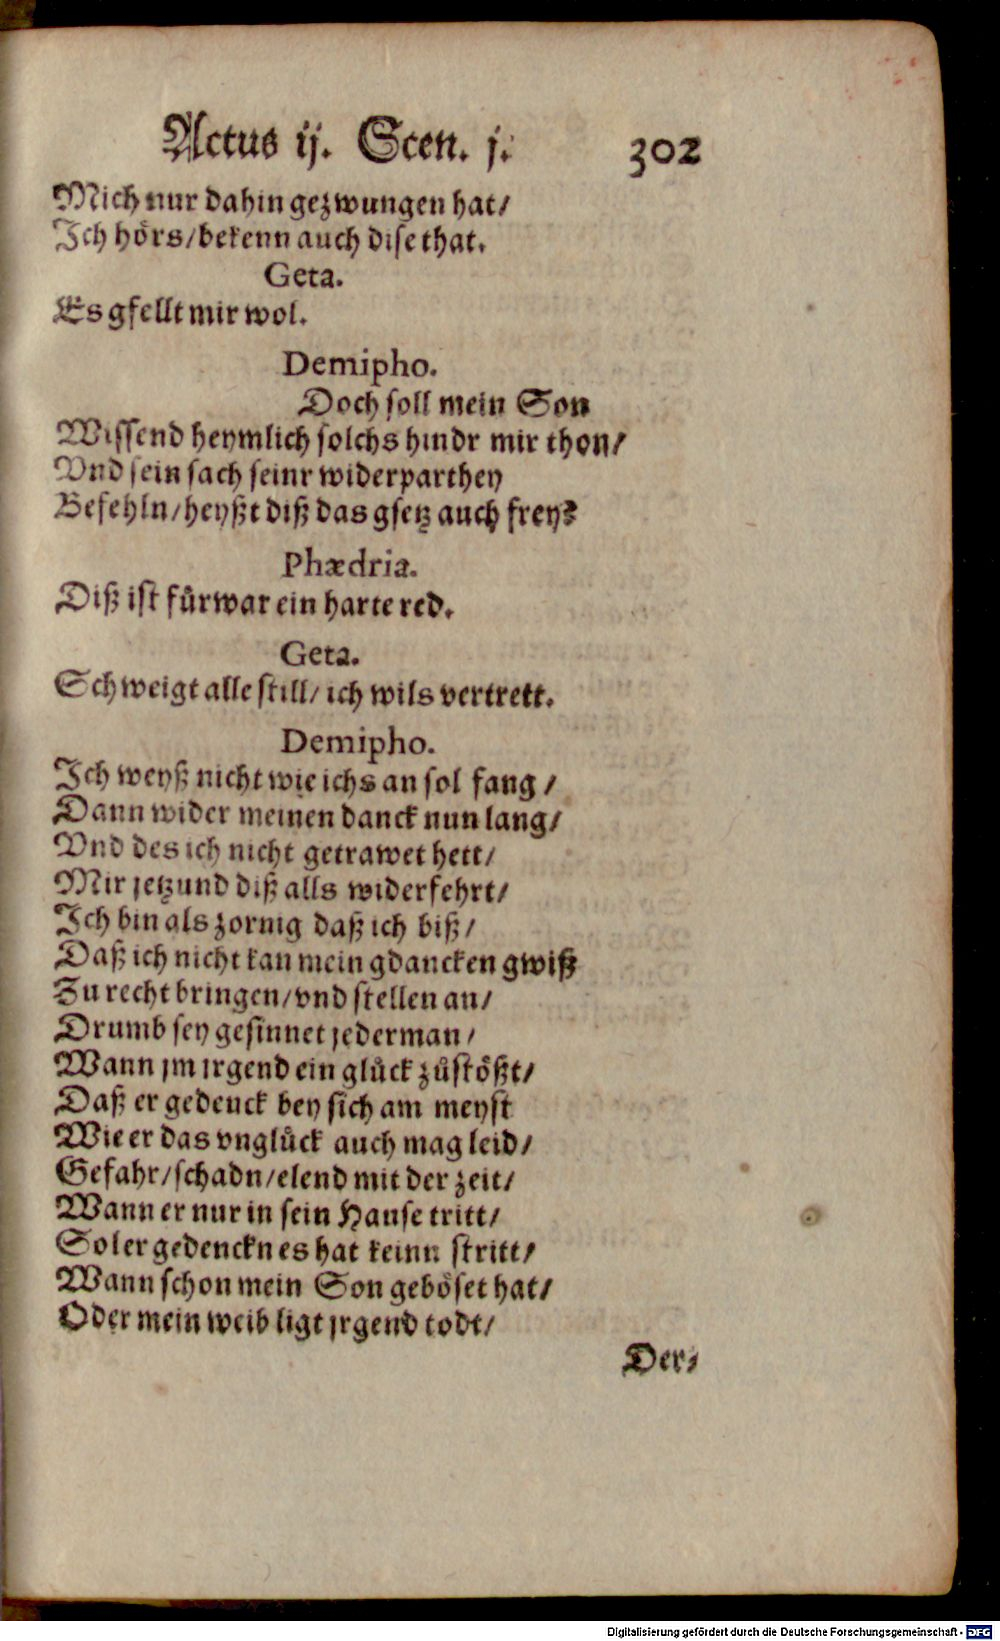 Actus ij. Scen. j. 302
Mich nur dahin gezwungen hat/
Ich hörs/bekenn auch dise that.
Geta.
Es gfellt mir wol.
Demipho.
Doch soll mein Son
Wissend heymlich solchs hindr mir thon/
Vnd sein sach seinr widerparthey
Befehln/heyßt diß das gsetz auch frey?
Phædria.
Diß ist fürwar ein harte red.
Geta.
Schweigt alle still/ich wils vertrett.
Demipho.
Ich weyß nicht wie ichs an sol fang/
Dann wider meinen danck nun lang/
Vnd des ich nicht getrawet hett/
Mir jetzund diß alls widerfehrt/
Ich bin als zornig daß ich biß/
Daß ich nicht kan mein gdancken gwiß
Zu recht bringen/vnd stellen an/
Drumb sey gesinnet jederman/
Wann jm jrgend ein glück zůstößt/
Daß er gedenck bey sich am meyst
Wie er das vnglück auch mag leid/
Gefahr/schadn/elend mit der zeit/
Wann er nur in sein Hause tritt/
Sol er gedenckn es hat keinn stritt/
Wann schon mein Son geböset hat/
Oder mein weib ligt jrgend todt/
Der/
Digitalisierung gefördert durch die Deutsche Forschungsgemeinschaft - DFG